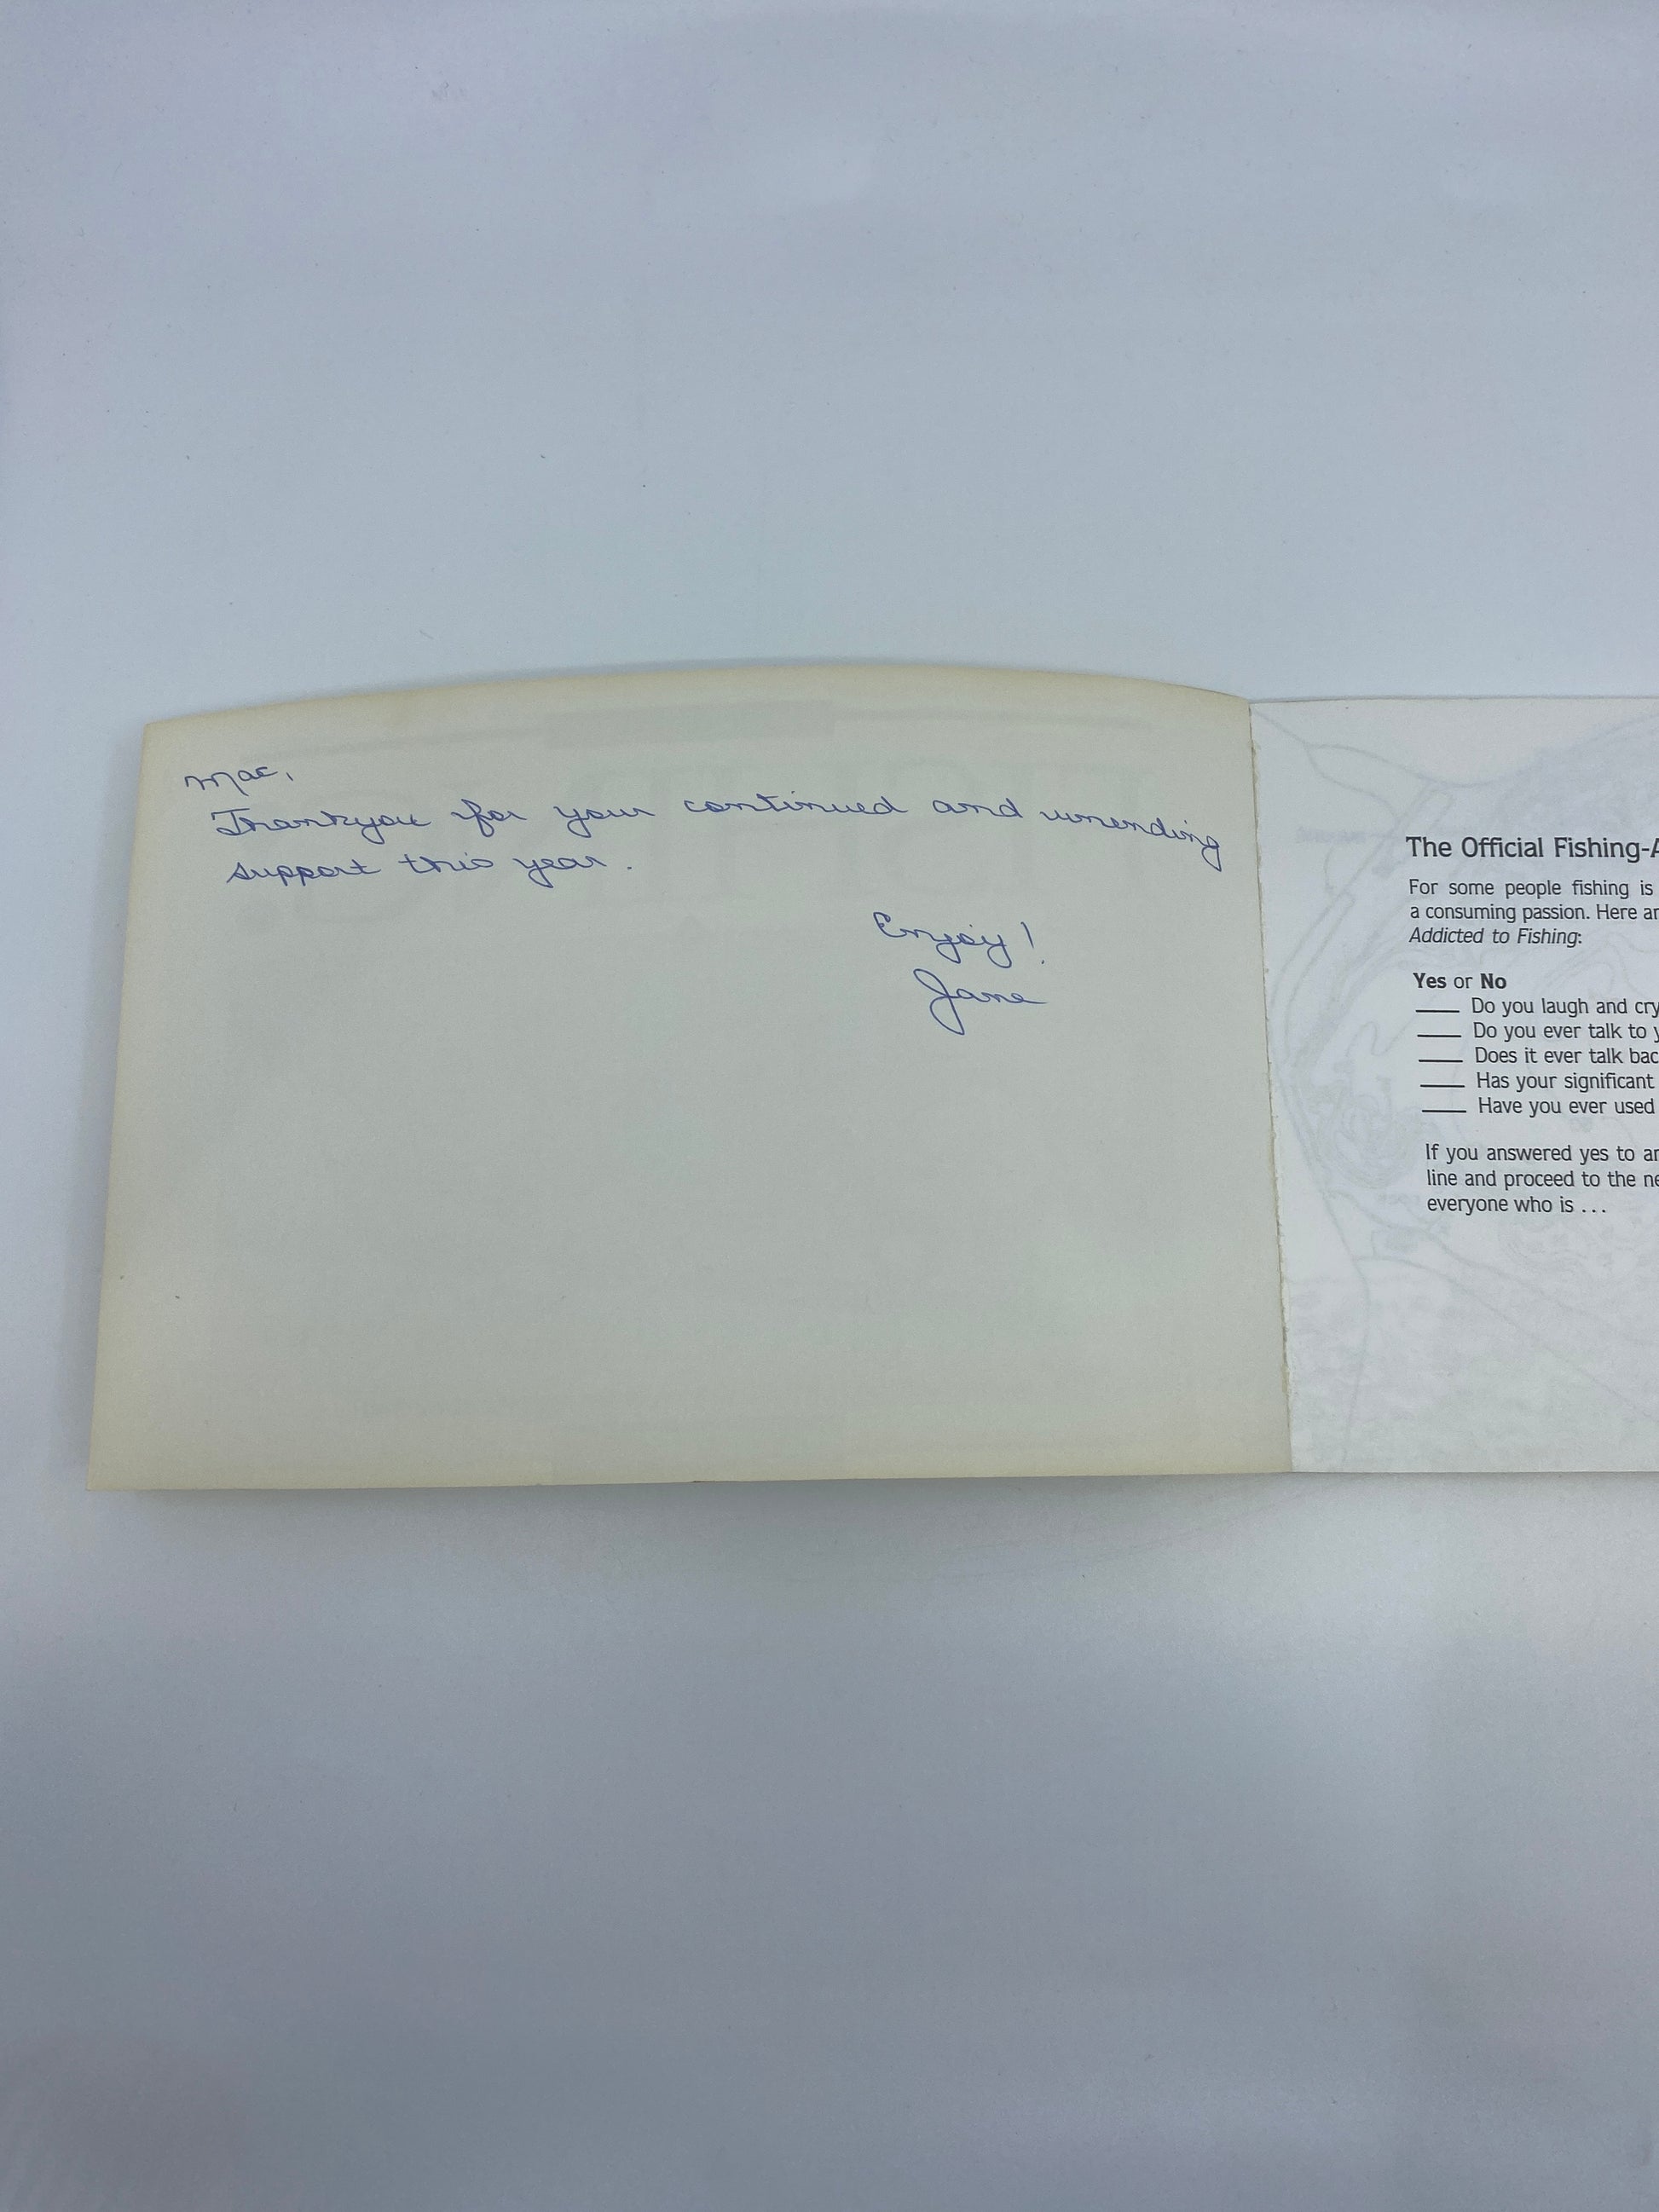 Mac,
Thankyou for your continued and unending
support this year.
Enjoy!
Jane
The Official Fishing-A
For some people fishing is
a consuming passion. Here ar
Addicted to Fishing:
Yes or No
____ Do you laugh and cry
____ Do you ever talk to y
____ Does it ever talk bac
____ Has your significant
____ Have you ever used
If you answered yes to an
line and proceed to the ne
everyone who is ...